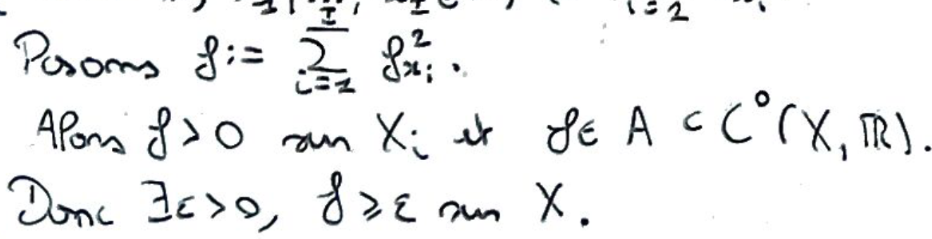 Posons f := \sum_{i=1}^{I} f_{x_i}^2.
Alors f > 0 sur X_i et f ∈ A ⊂ C^0(X, ℝ).
Donc ∃ε>0, f ≥ ε sur X.